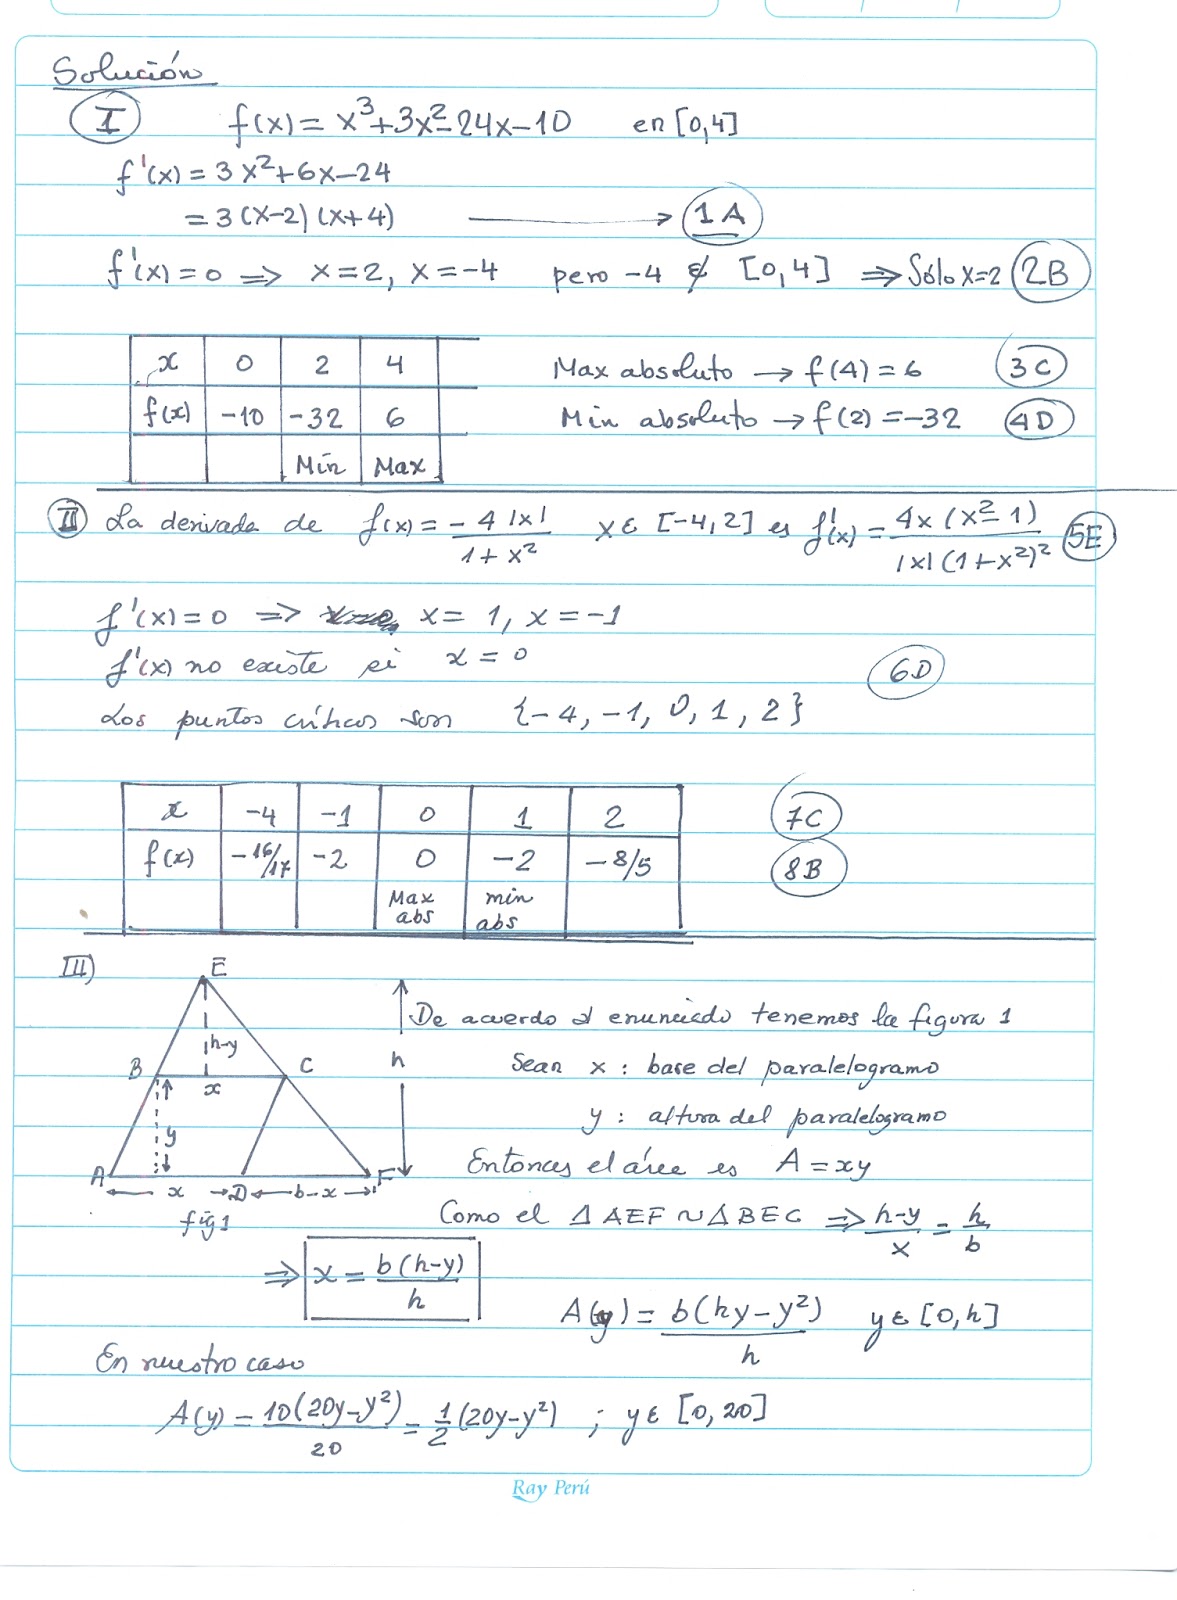 Solución
I f(x) = x³+3x²-24x-10 en [0,4]
f'(x) = 3x²+6x-24
= 3(x-2)(x+4) → 1A
f'(x)=0 ⇒ x=2, x=-4 pero -4 ∉ [0,4] ⇒ Sólo x=2 2B
x 0 2 4
f(x) -10 -32 6
Min Max
Max absoluto → f(4) = 6 3C
Min absoluto → f(2) = -32 4D
II La derivada de f(x) = -4|x| / (1+x²) x ε [-4,2] es f'(x) = 4x(x²-1) / |x|(1+x²)² 5E
f'(x)=0 ⇒ x= 1, x=-1
f'(x) no existe si x=0 6D
Los puntos críticos son {-4, -1, 0, 1, 2}
x -4 -1 0 1 2
f(x) -16/17 -2 0 -2 -8/5
Max abs min abs
7C
8B
III)
E
h-y
B C
x
y
h
A x D b-x F
fig 1
De acuerdo al enunciado tenemos la figura 1
Sean x : base del paralelogramo
y : altura del paralelogramo
Entonces el área es A = xy
Como el Δ AEF ~ Δ BEC ⇒ (h-y)/x = h/b
⇒ x = b(h-y)/h
A(y) = b(hy-y²)/h y ε [0,h]
En nuestro caso
A(y) = 10(20y-y²)/20 = 1/2(20y-y²) ; y ε [0,20]
Ray Perú